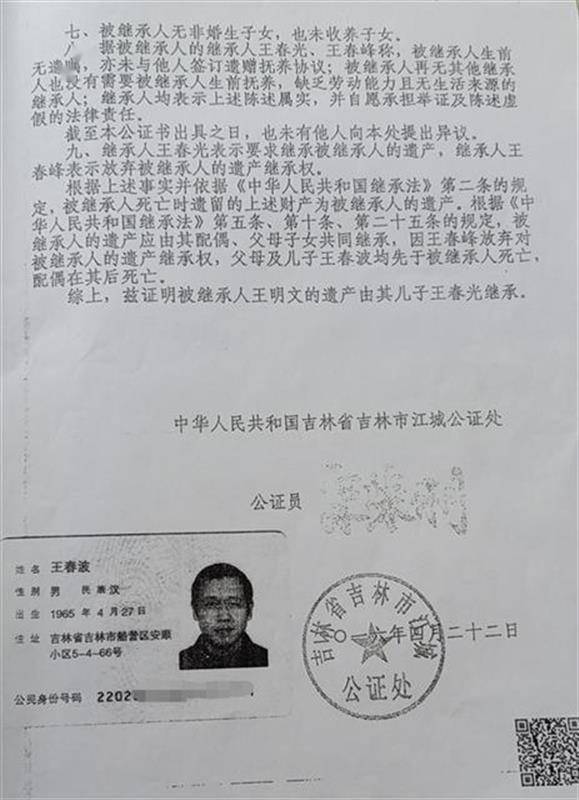 七、被继承人无非婚生子女，也未收养子女。
八、据被继承人的继承人王春光、王春峰称，被继承人生前
无遗嘱，亦未与他人签订遗赠抚养协议；被继承人再无其他继承
人也没有需要被继承人生前抚养，缺乏劳动能力且无生活来源的
继承人；继承人均表示上述陈述属实，并自愿承担举证及陈述虚
假的法律责任。
截至本公证书出具之日，也未有他人向本处提出异议。
九、继承人王春光表示要求继承被继承人的遗产，继承人王
春峰表示放弃被继承人的遗产继承权。
根据上述事实并依据《中华人民共和国继承法》第二条的规
定，被继承人死亡时遗留的上述财产为被继承人的遗产。根据《中
华人民共和国继承法》第五条、第十条、第二十五条的规定，被
继承人的遗产应由其配偶、父母子女共同继承，因王春峰放弃对
被继承人的遗产继承权，父母及儿子王春波均先于被继承人死亡，
配偶在其后死亡。
综上，兹证明被继承人王明文的遗产由其儿子王春光继承。
中华人民共和国吉林省吉林市江城公证处
公证员
姓名 王春波
性别 男 民族 汉
出生 1965 年 4 月 27 日
住址 吉林省吉林市船营区安顺
小区5-4-66号
公民身份号码 2202
吉林省吉林市江城
六年四月二十二日
公证处